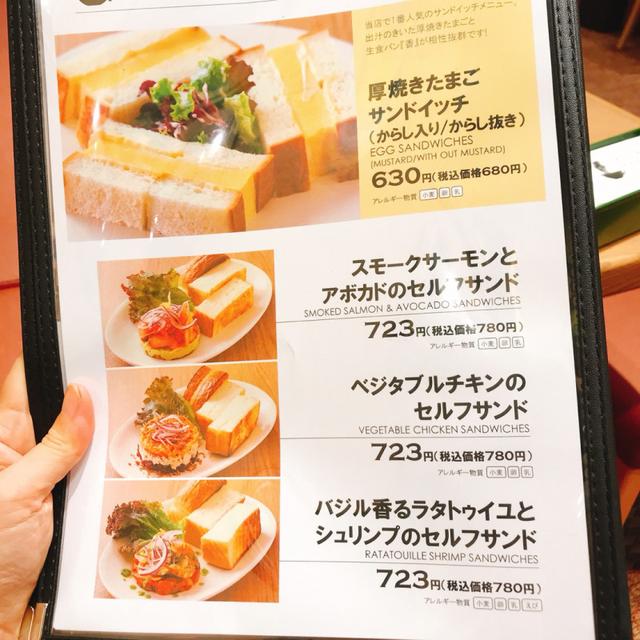 当店で1番人気のサンドイッチメニュー。
出汁のきいた厚焼きたまごと
生食パン『香』が相性抜群です!
厚焼きたまご
サンドイッチ
(からし入り/からし抜き)
EGG SANDWICHES
(MUSTARD/WITH OUT MUSTARD)
630円(税込価格680円)
アレルギー物質 小麦 卵 乳
スモークサーモンと
アボカドのセルフサンド
SMOKED SALMON & AVOCADO SANDWICHES
723円(税込価格780円)
アレルギー物質 小麦 卵 乳
ベジタブルチキンの
セルフサンド
VEGETABLE CHICKEN SANDWICHES
723円(税込価格780円)
アレルギー物質 小麦 卵 乳
バジル香るラタトゥイユと
シュリンプのセルフサンド
RATATOUILLE SHRIMP SANDWICHES
723円(税込価格780円)
アレルギー物質 小麦 卵 乳 えび